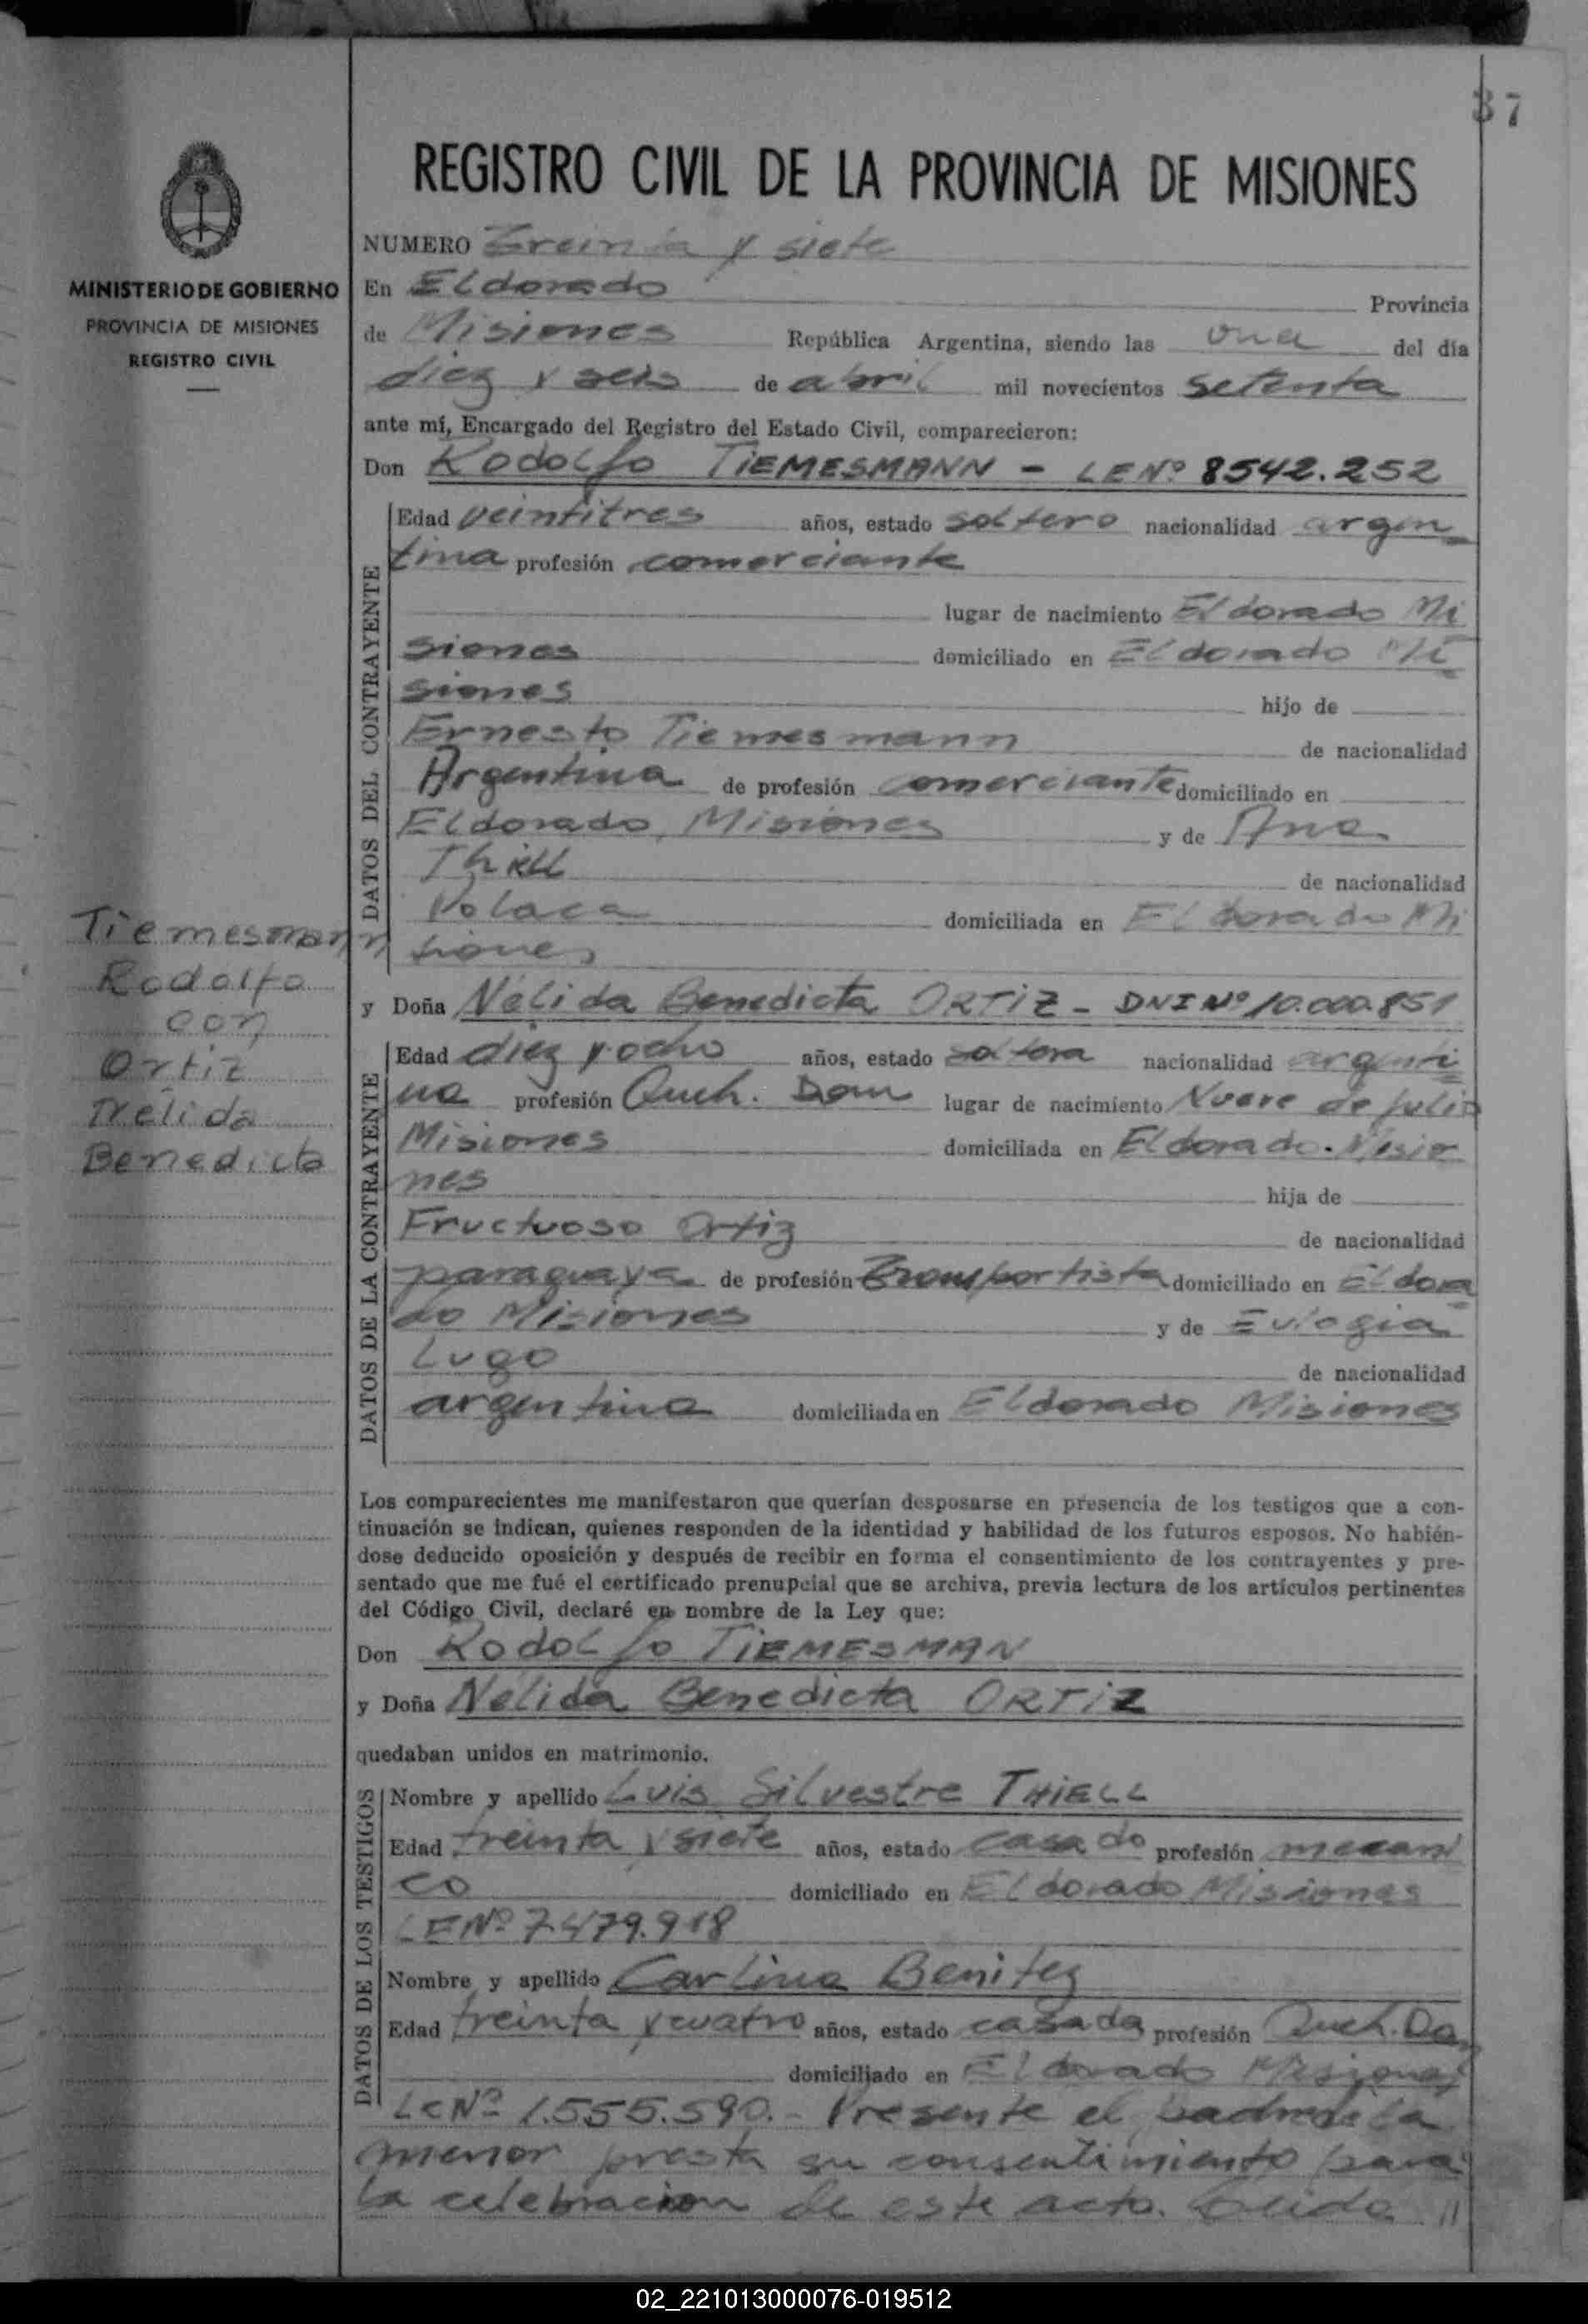 37
REGISTRO CIVIL DE LA PROVINCIA DE MISIONES
MINISTERIO DE GOBIERNO
PROVINCIA DE MISIONES
REGISTRO CIVIL
NUMERO Treinta y siete
En Eldorado Provincia
de Misiones República Argentina, siendo las once del día
diez y seis de abril mil novecientos setenta
ante mí, Encargado del Registro del Estado Civil, comparecieron:
Don Rodolfo TIEMESMANN - LENº 8542.252
DATOS DEL CONTRAYENTE
Edad veintitres años, estado soltero nacionalidad argen
tina profesión comerciante
lugar de nacimiento Eldorado Mi
siones domiciliado en Eldorado Mi
siones hijo de
Ernesto Tiemesmann de nacionalidad
Argentina de profesión comerciante domiciliado en
Eldorado Misiones y de Ana
Thiell de nacionalidad
Polaca domiciliada en Eldorado Mi
siones
Tiemesmann
Rodolfo
con
Ortiz
Nélida
Benedicta
y Doña Nélida Benedicta ORTIZ - DNI Nº 10.000.851
DATOS DE LA CONTRAYENTE
Edad diez y ocho años, estado soltera nacionalidad argenti
na profesión Queh. Dom lugar de nacimiento Nueve de Julio
Misiones domiciliada en Eldorado - Misio
nes hija de
Fructuoso Ortiz de nacionalidad
paraguaya de profesión Transportista domiciliado en Eldora
do Misiones y de Eulogia
Lugo de nacionalidad
argentina domiciliada en Eldorado Misiones
Los comparecientes me manifestaron que querían desposarse en presencia de los testigos que a con-
tinuación se indican, quienes responden de la identidad y habilidad de los futuros esposos. No habién-
dose deducido oposición y después de recibir en forma el consentimiento de los contrayentes y pre-
sentado que me fué el certificado prenupcial que se archiva, previa lectura de los artículos pertinentes
del Código Civil, declaré en nombre de la Ley que:
Don Rodolfo TIEMESMAN
y Doña Nélida Benedicta ORTIZ
quedaban unidos en matrimonio.
DATOS DE LOS TESTIGOS
Nombre y apellido Luis Silvestre THIELL
Edad treinta y siete años, estado casado profesión mecani
co domiciliado en Eldorado Misiones
LENº 7.479.918
Nombre y apellido Carlina Benitez
Edad treinta y cuatro años, estado casada profesión Queh. Dom
domiciliado en Eldorado Misiones
LCNº 1.555.590.- Presente el padre de la
menor presta su consentimiento para
la celebracion de este acto. Leida //
02_221013000076-019512